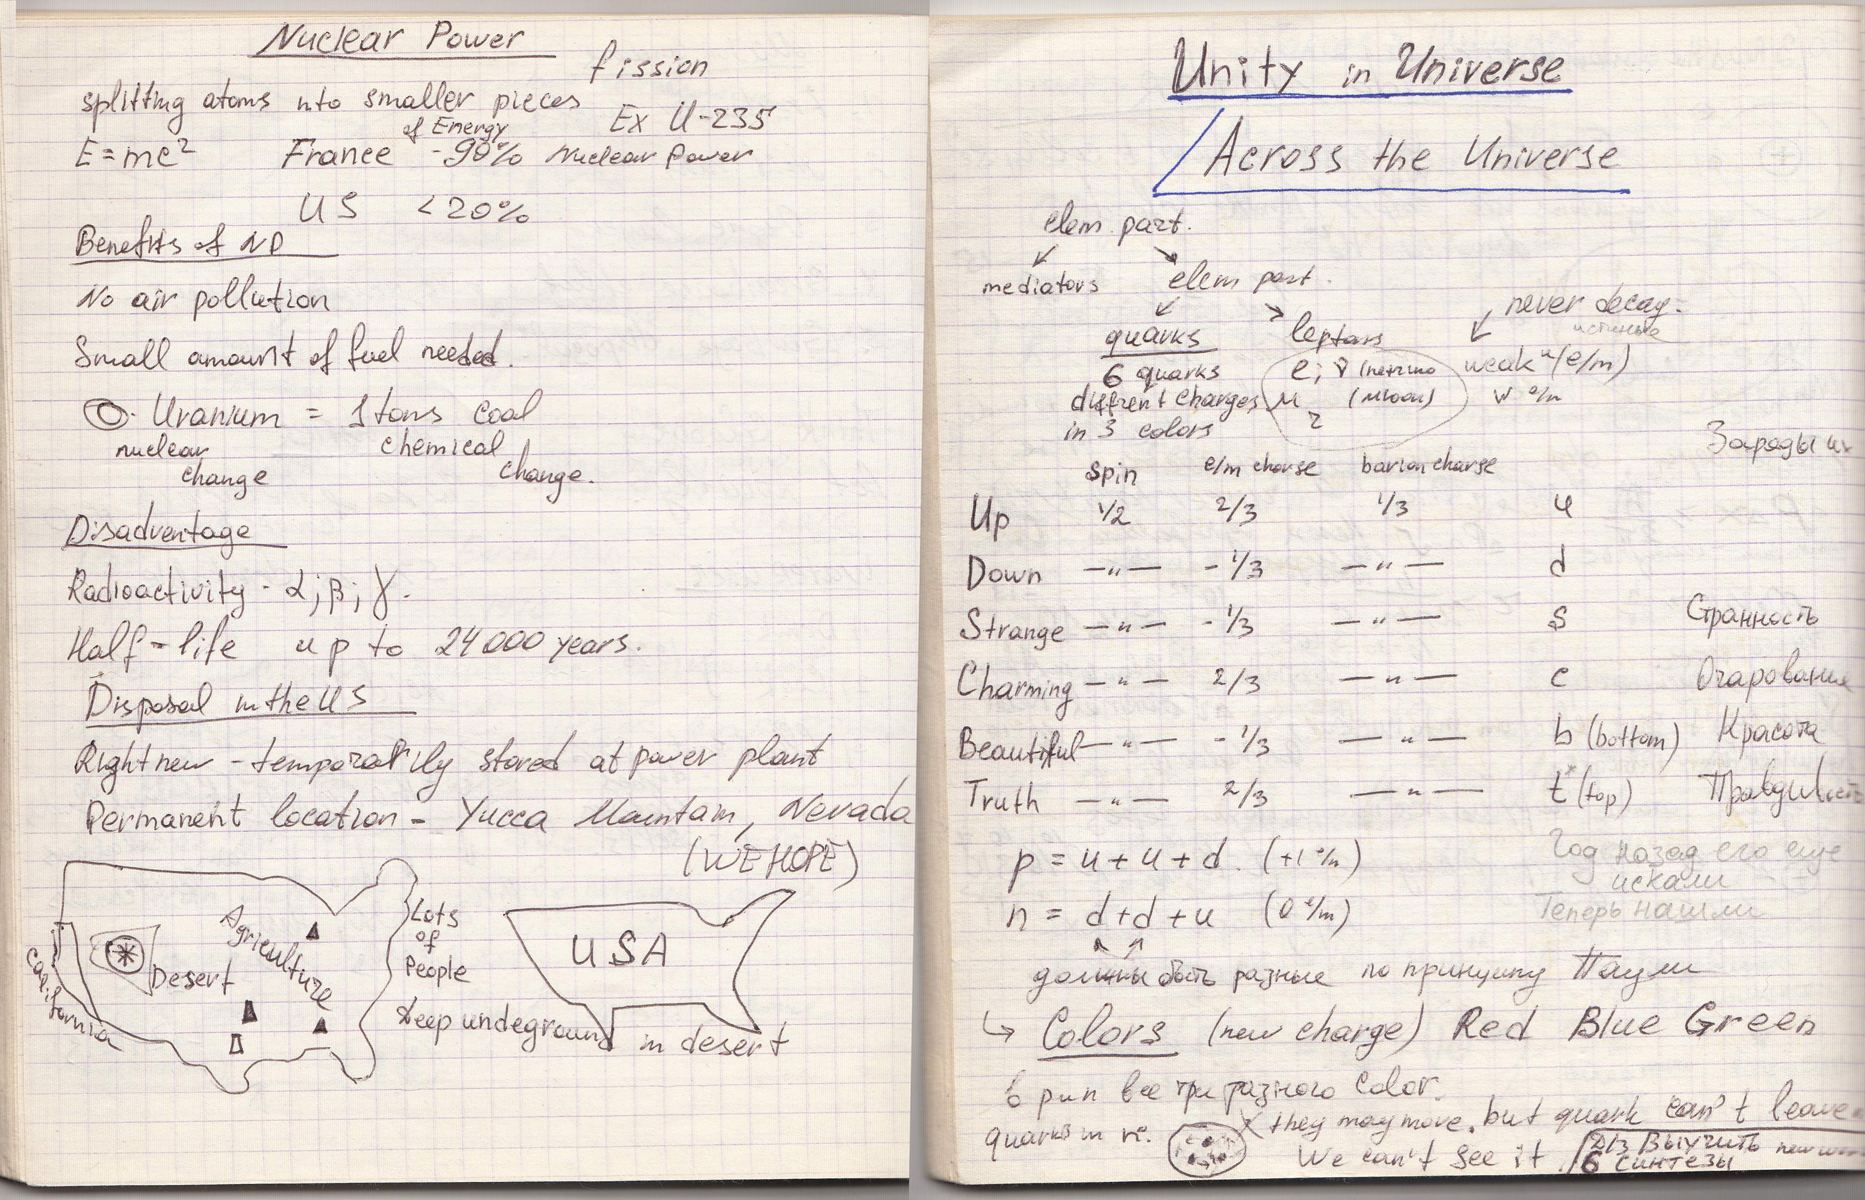 Nuclear Power
fission
splitting atoms nto smaller pieces
Ex U-235
of Energy
E=mc² France -90% Nuclear Power
US <20%
Benefits of NP
No air pollution
Small amount of fuel needed.
Uranium = 1 tons coal
nuclear chemical
change change.
Disadvantage
Radioactivity - α; β; γ.
Half-life up to 24000 years.
Disposal in the US
Right now - temporarily stored at power plant
Permanent location - Yucca Mountain, Nevada
(WE HOPE)
California
Desert
Agriculture
Lots
of
People
USA
Deep undeground in desert
Unity in Universe
Across the Universe
elem. part.
mediators elem part.
never decay.
quarks leptons
истинные
6 quarks e; ν (netrino weak (e/m)
diffrent charges μ (muon) W e/m
in 3 colors τ
Заряды их
spin e/m charse barion charse
Up 1/2 2/3 1/3 u
Down —"— -1/3 —"— d
Strange —"— -1/3 —"— S Странность
Charming —"— 2/3 —"— c Очарование
Beautiful —"— -1/3 —"— b (bottom) Красота
Truth —"— 2/3 —"— t* (top) Правдивость
p = u+u+d. (+1 e/m)
Год назад его еще
искали
n = d+d+u (0 e/m)
Теперь нашли
должны быть разные по принципу Паули
↳ Colors (new charge) Red Blue Green
в p и n все три разного color.
quarks in n. they may move, but quark can't leave
We can't see it
Д/з Выучить new
6 синтезы